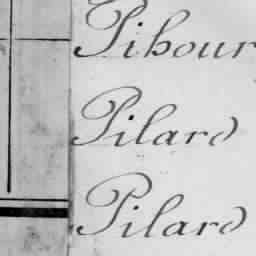 Pihour
Pilard
Pilard